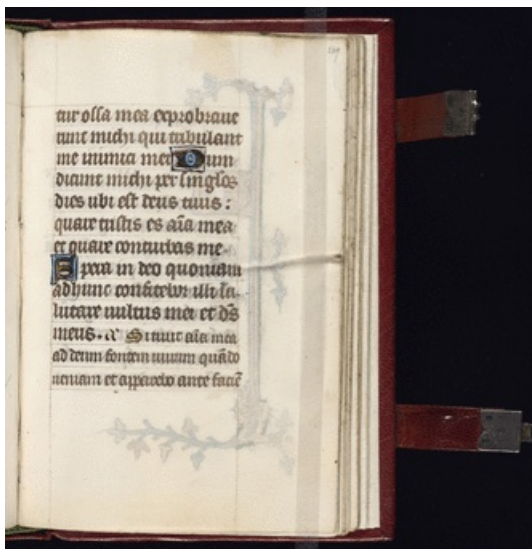 tur ossa mea exprobraue
runt michi qui tribulant
me inimici mei Dum
dicunt michi per singlos
dies ubi est deus tuus :
quare tristis es aīa mea
et quare conturbas me.
Spera in deo quoniam
adhuc confitebor illi sa
lutare uultus mei et d̄s
meus. Sitiuit aīa mea
ad deum fontem uiuum quādo
ueniam et apparebo ante faciē